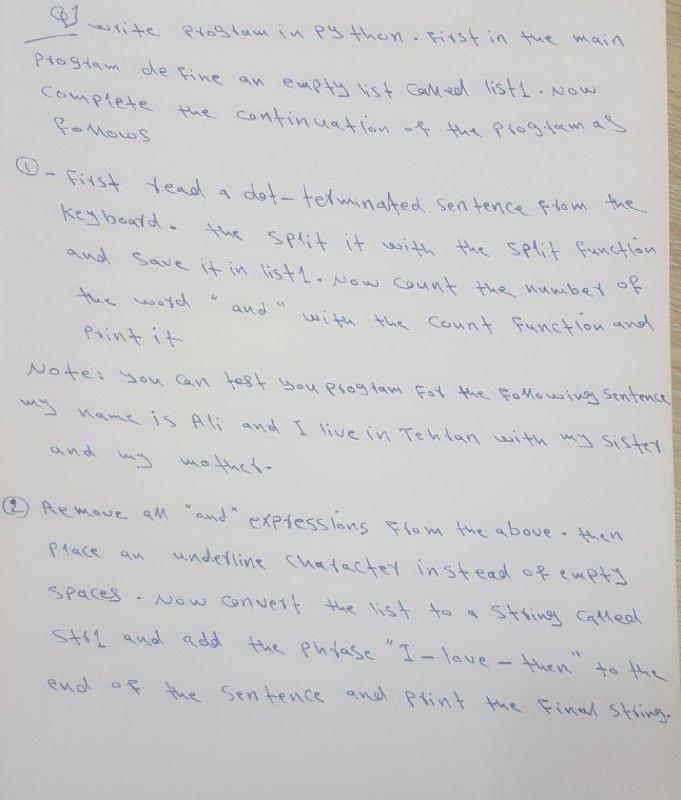 Q1 write program in python. First in the main
program define an empty list called list1. Now
complete the continuation of the program as
follows
① - First read a dot-terminated sentence from the
keyboard. the split it with the split function
and save it in list1. Now count the number of
the word "and" with the count function and
print it
Note: you can test you program for the following sentence
my name is Ali and I live in Tehran with my sister
and my mother.
② Remove all "and" expressions from the above. then
place an underline character instead of empty
spaces. Now convert the list to a string called
str1 and add the phrase "I-love-then" to the
end of the sentence and print the final string.